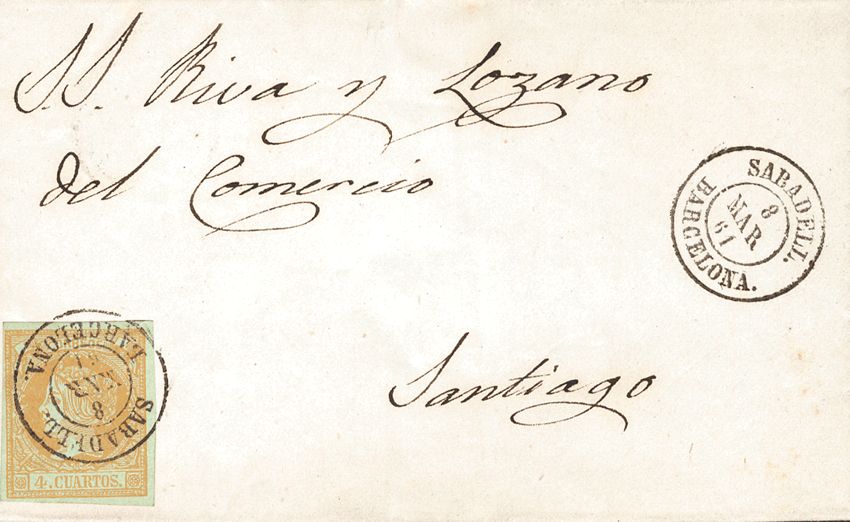 S.S. Riva y Lozano
del Comercio
SABADELL.
8
MAR
61
BARCELONA.
Santiago
BARCELONA.
61
MAR
8
SABADELL.
4. CUARTOS.